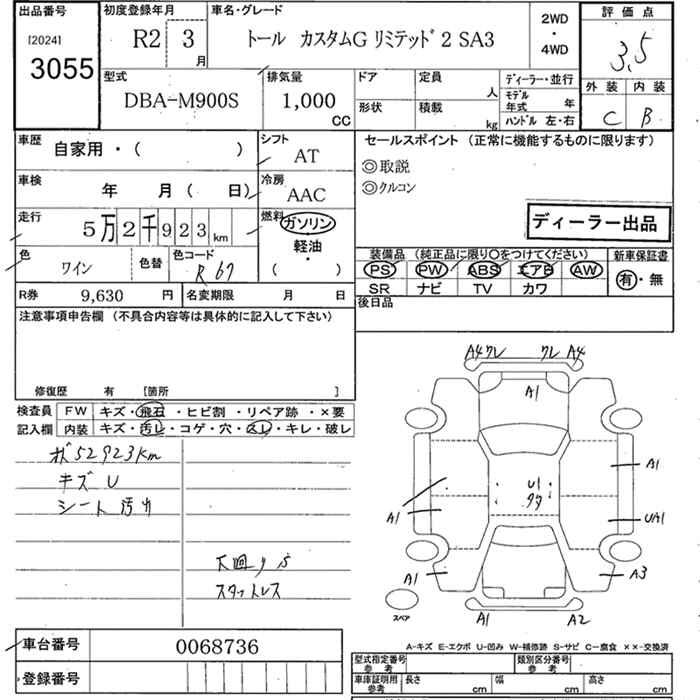 出品番号
[2024]
3055
初度登録年月
R2 3 月
車名・グレード
トール カスタムG リミテッド2 SA3
2WD
・
4WD
評価点
3.5
外装 内装
C B
型式
DBA-M900S
排気量
1,000
CC
ドア
形状
定員
人
積載
kg
ディーラー・並行
モデル
年式 年
ハンドル 左・右
車歴
自家用・( )
シフト
AT
車検
年 月( 日)
冷房
AAC
走行
5万2千923km
燃料
ガソリン
軽油
・
( )
色
ワイン
色替
色コード
R67
R券 9,630 円
名変期限 月 日
セールスポイント (正常に機能するものに限ります)
◎取説
◎クルコン
ディーラー出品
装備品 (純正品に限り〇をつけてください)
PS PW ABS エアB AW
SR ナビ TV カワ
新車保証書
有・無
後日品
注意事項申告欄 (不具合内容等は具体的に記入して下さい)
修復歴 有 [箇所 ]
検査員
記入欄
FW キズ・飛石・ヒビ割・リペア跡・×要
内装 キズ・汚し・コゲ・穴・スレ・キレ・破レ
52923km
キズ U
シート汚れ
スタットレス
A4 ワレ ワレ A4
A1
A1
U1
A1
UA1
A1
A3
A1
A2
スペア
A-キズ E-エクボ U-凹み W-補修跡 S-サビ C-腐食 ××-交換済
車台番号 0068736
登録番号
型式指定番号
参考
類別区分番号
参考
車庫証明用
参考
長さ cm 幅 cm 高さ cm